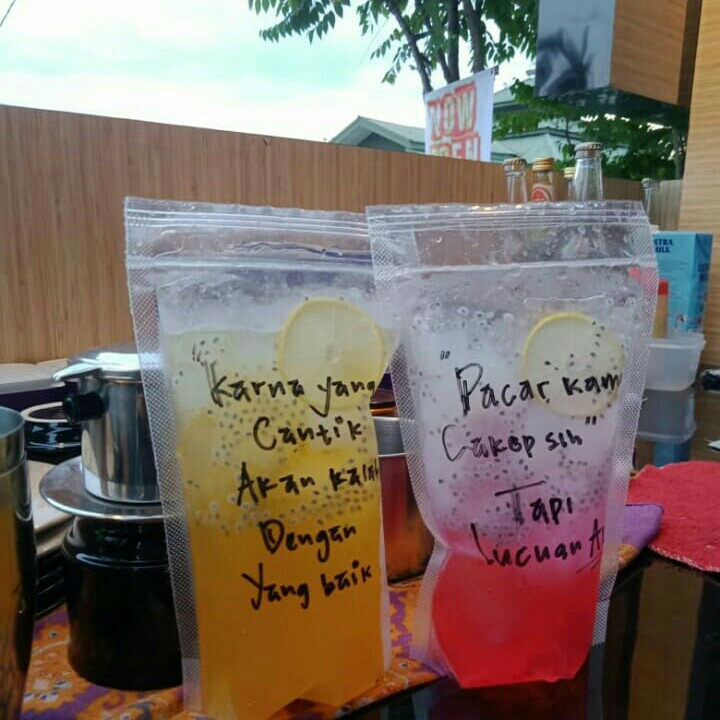 NOW
OPEN
"Karna yang
Cantik
Akan kalah
Dengan
Yang baik
"Pacar kam
Cakep sih"
Tapi
Lucuan A